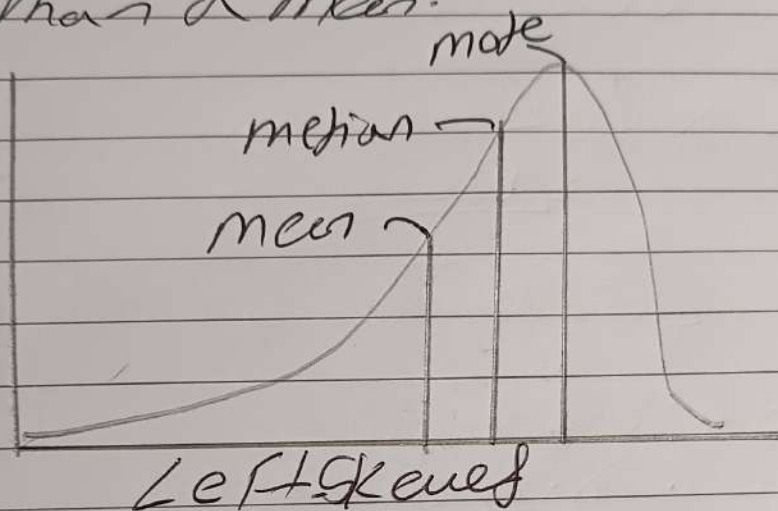 than a mean.
mode
median
mean
Left Skewed